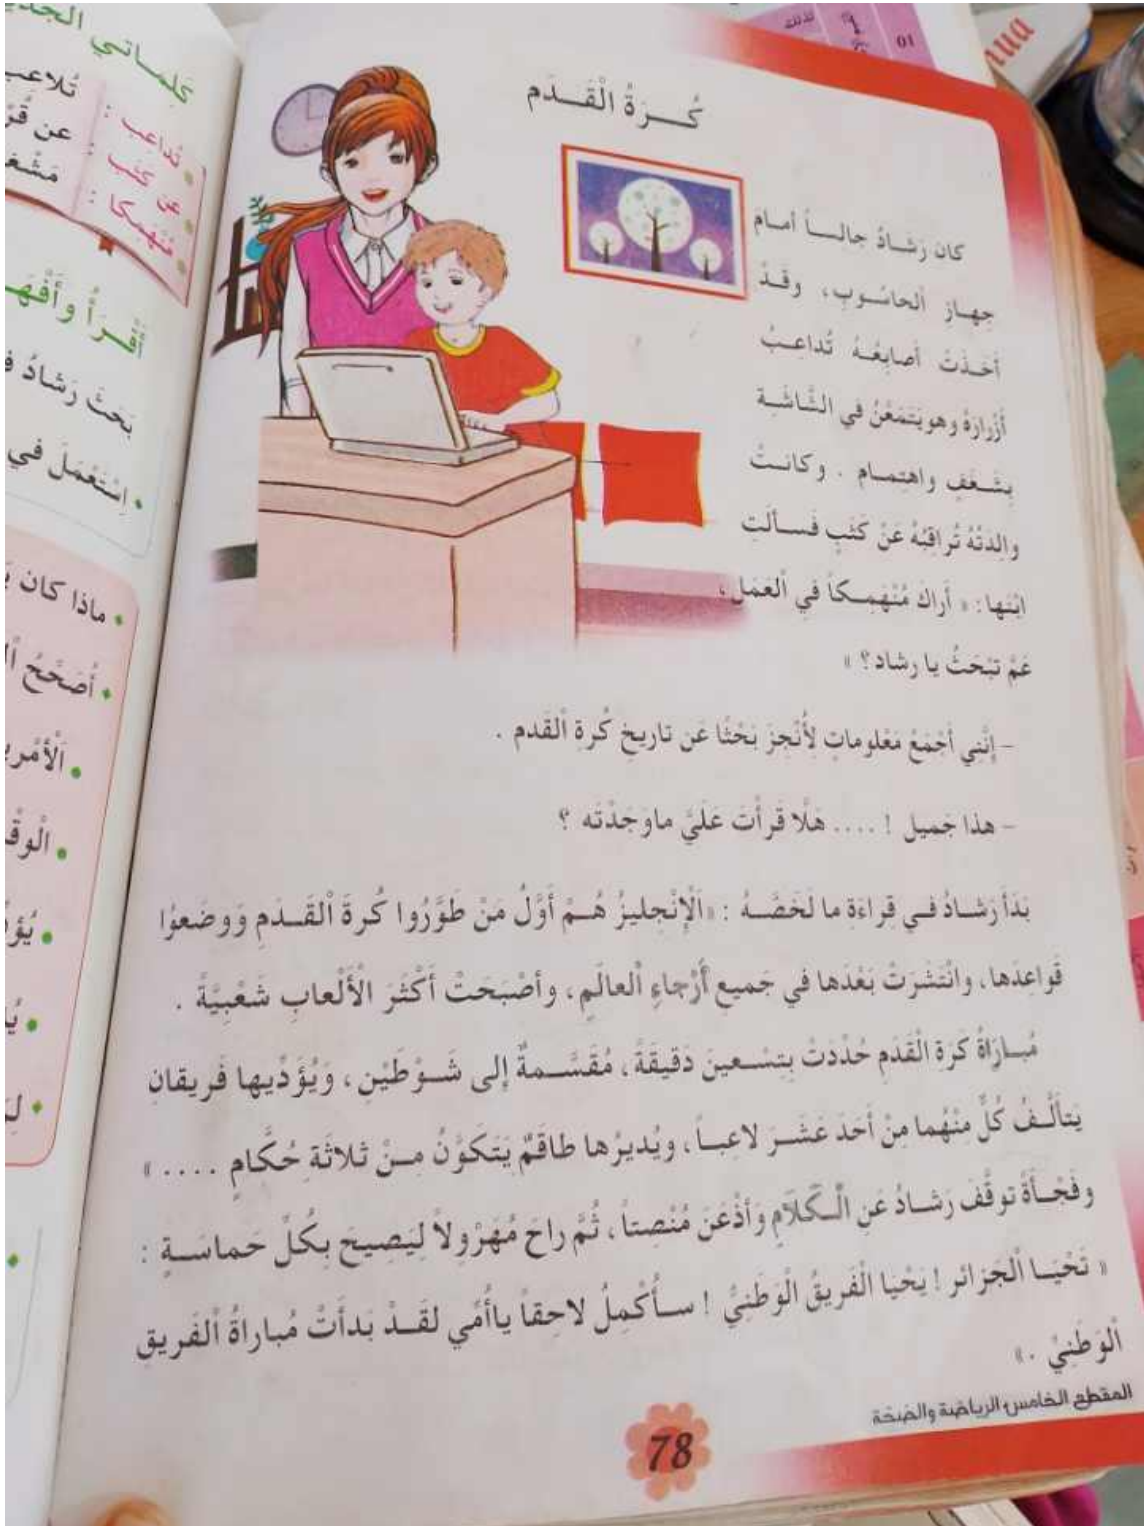 كُـــرَةُ الْقَـــدَم
كان رَشـادُ جالســاً أمامَ
جِهـازِ الحاسُوبِ، وقَـدْ
أخَـذَتْ أصابِعُـهُ تُداعـبُ
أَزْرارَهُ وهو يَتَمَعَّنُ في الشَّاشَةِ
بِشَـغَفٍ واهتِمـامٍ . وكانـتْ
والِدتُهُ تُراقِبُهُ عَنْ كَثَبٍ فَسـألَتِ
ابْنَها: « أراكَ مُنْهَمِـكاً في الْعَمَل،
عَمَّ تبْحَثُ يا رشاد؟ »
- إنَّنِي أجْمَعُ مَعْلوماتٍ لِأُنْجِزَ بَحْثًا عَن تاريخِ كُرةِ الْقَدم .
- هذا جَميل ! .... هَلَّا قَرأْتَ عَلَيَّ ماوَجَدْتَه ؟
بَدَأَ رَشـادُ فـي قِراءَةِ ما لَخَصَّـهُ : «اَلْإنْجليزُ هُـمْ أوَّلُ مَنْ طَوَّرُوا كُرةَ الْقَـدَمِ وَوضَعوُا
قَواعِدَها، وانْتَشَرَتْ بَعْدَها في جَميعِ أَرْجاءِ الْعالَمِ، وأصْبَحَتْ أَكْثَرَ الْأَلْعابِ شَعْبِيَّةً .
مُبـارَاةُ كَرَةِ الْقَدَمِ حُدِّدَتْ بِتِسْـعينَ دَقيقَةً، مُقَسَّـمةٌ إلى شَـوْطَيْنِ، وَيُؤَدِّيها فَريقانِ
يَتألَّـفُ كُلٌّ مِنْهُما مِنْ أَحَدَ عَشَـرَ لاعِبـاً، ويُديرُها طاقَمٌ يَتَكَوَّنُ مِـنْ ثلاثَةِ حُكَّامٍ .... »
وفَجْـأَةً توقَّفَ رَشـادُ عَنِ الْـكَلَامِ وَأذْعَنَ مُنْصِتاً، ثُمَّ راحَ مُهَرْوِلاً لِيَصِيحَ بِكُلِّ حَماسَـةٍ :
« تَحْيَـا الْجَزائر ! يَحْيا الْفَريقُ الْوَطَنِيُّ ! سـأُكْمِلُ لاحِقاً ياأُمِّي لقَـدْ بَدأَتْ مُباراةُ الْفَريقِ
الْوَطَنِيِّ .»
المقطع الخامس: الرياضة والصّحّة
78
تُداعب :
عن كَثَب :
مُنْهَمِكا :
عن
بَحَثَ رَشادُ
اِسْتَعْمَلَ في
ماذا كان
أُصَحِّحُ
01
لذلك